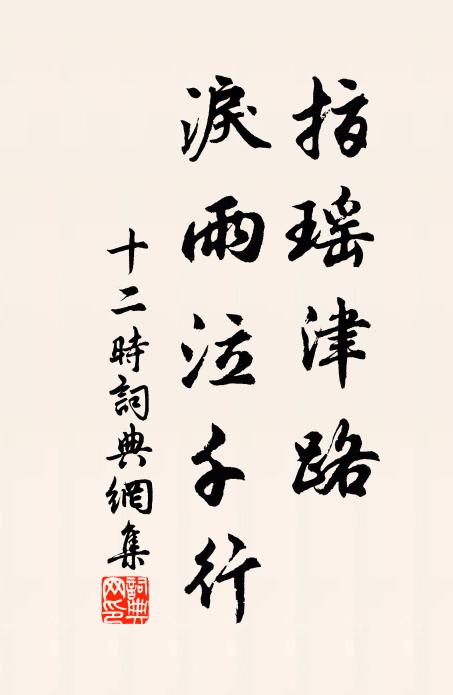 指瑶津路
淚雨泣千行
十二時詞典網集
詞典
网印